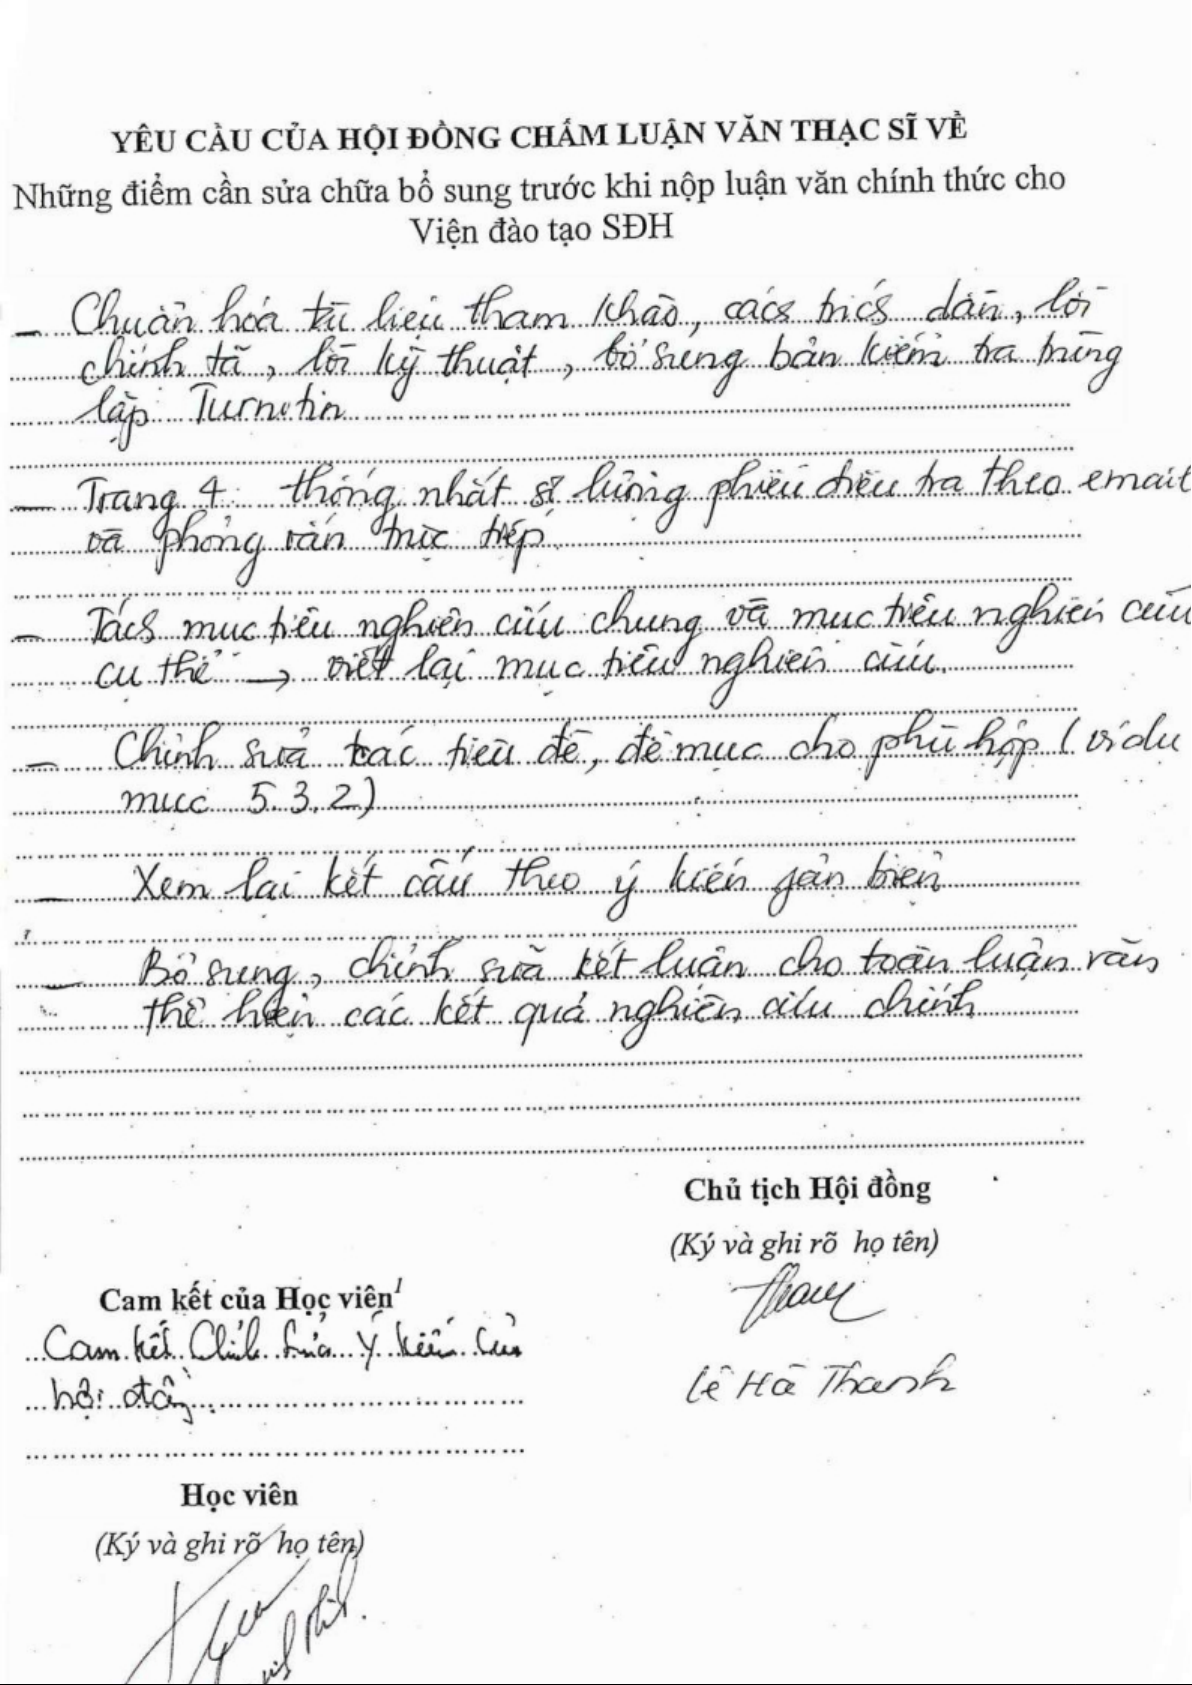 YÊU CẦU CỦA HỘI ĐỒNG CHẤM LUẬN VĂN THẠC SĨ VỀ
Những điểm cần sửa chữa bổ sung trước khi nộp luận văn chính thức cho
Viện đào tạo SĐH
- Chuẩn hóa tài liệu tham khảo, các trích dẫn, lỗi
chính tả, lỗi kỹ thuật, bổ sung bản kiểm tra trùng
lặp Turnitin
- Trang 4: thống nhất số lượng phiếu điều tra theo email
và phỏng vấn trực tiếp
- Tách mục tiêu nghiên cứu chung và mục tiêu nghiên cứu
cụ thể → viết lại mục tiêu nghiên cứu.
- Chỉnh sửa các tiêu đề, đề mục cho phù hợp (ví dụ
mục 5.3.2)
- Xem lại kết cấu theo ý kiến phản biện
- Bổ sung, chỉnh sửa kết luận cho toàn luận văn
thể hiện các kết quả nghiên cứu chính
Chủ tịch Hội đồng
(Ký và ghi rõ họ tên)
Lê Hà Thanh
Cam kết của Học viên1
Cam kết Chỉnh sửa ý kiến của
hội đồng
Học viên
(Ký và ghi rõ họ tên)